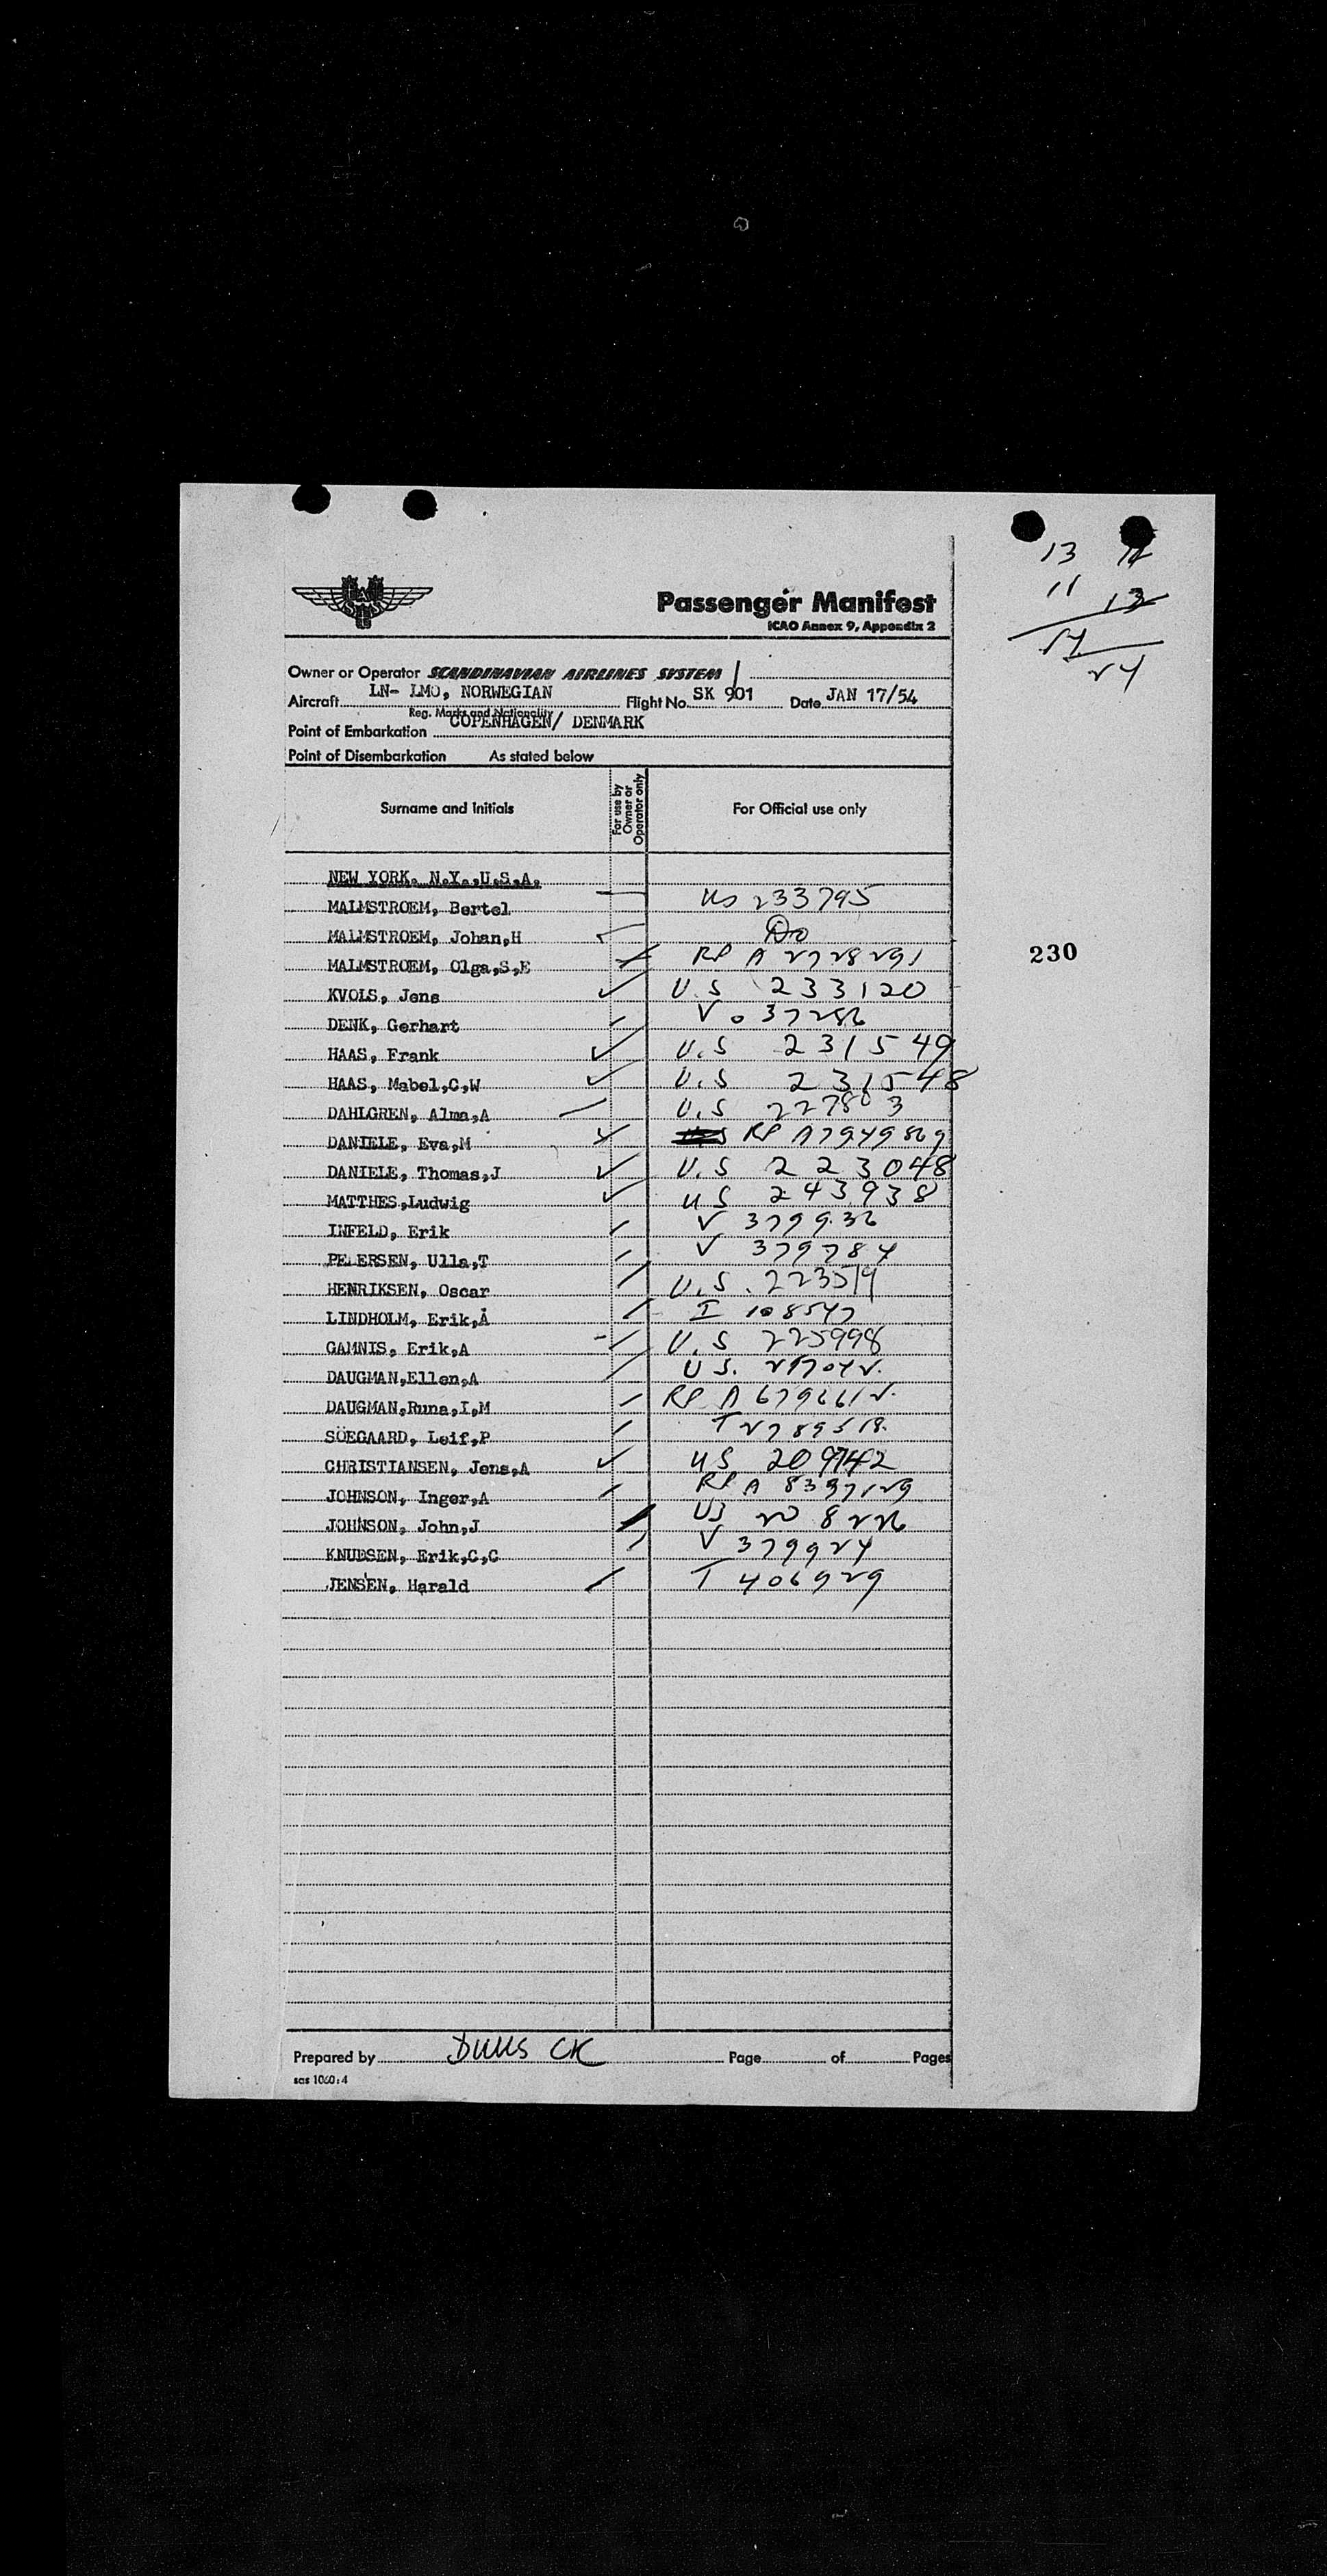 13 11
11 13
24
24
SAS
Passenger Manifest
ICAO Annex 9, Appendix 2
Owner or Operator SCANDINAVIAN AIRLINES SYSTEM
Aircraft LN- LMO, NORWEGIAN Flight No. SK 901 Date JAN 17/54
Reg. Marks and Nationality
Point of Embarkation COPENHAGEN/ DENMARK
Point of Disembarkation As stated below
Surname and Initials For use by Owner or Operator only For Official use only
NEW YORK. N.Y.,U.S.A.
MALMSTROEM, Bertel US 233795
MALMSTROEM, Johan,H Do
230
MALMSTROEM, Olga,S,E RP A 2728291
KVOLS, Jens U.S 233120
DENK, Gerhart V 037286
HAAS, Frank U.S 231549
HAAS, Mabel,C,W U.S 231548
DAHLGREN, Alma,A U.S 227803
DANIELE, Eva,M RP A7949869
DANIELE, Thomas,J U.S 223048
MATTHES,Ludwig US 243938
INFELD, Erik V 379936
PETERSEN, Ulla,T V 379784
HENRIKSEN, Oscar U.S. 223519
LINDHOLM, Erik,Å I 108547
GAMNIS, Erik,A U.S 225998
DAUGMAN,Ellen,A U S.
DAUGMAN,Runa,I,M RP A 6796612
SÜEGAARD, Leif,P T 2789518
CHRISTIANSEN, Jens,A US 209742
JOHNSON, Inger,A RP A 8397129
JOHNSON, John,J US 208226
KNUDSEN, Erik,C,C V 379924
JENSEN, Harald T 406929
Prepared by CK Page of Pages
sas 1060:4